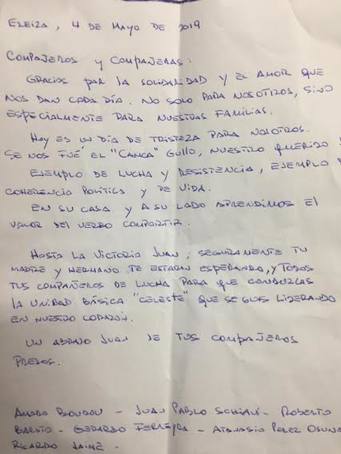 EZEIZA, 4 DE MAYO DE 2019
COMPAÑEROS Y COMPAÑERAS:
GRACIAS POR LA SOLIDARIDAD Y EL AMOR QUE
NOS DAN CADA DÍA. NO SOLO PARA NOSOTROS, SINO
ESPECIALMENTE PARA NUESTRAS FAMILIAS.
HOY ES UN DÍA DE TRISTEZA PARA NOSOTROS.
SE NOS FUÉ EL "CANCA" GULLO, NUESTRO QUERIDO
EJEMPLO DE LUCHA Y RESISTENCIA, EJEMPLO DE
COHERENCIA POLÍTICA Y DE VIDA.
EN SU CASA Y A SU LADO APRENDIMOS EL
VALOR DEL VERBO COMPARTIR.
HASTA LA VICTORIA JUAN, SEGURAMENTE TU
MADRE Y HERMANO TE ESTARÁN ESPERANDO, Y TODOS
TUS COMPAÑEROS DE LUCHA PARA QUE CONDUZCAS
LA UNIDAD BÁSICA "CELESTE" QUE SEGUIS LIDERANDO
EN NUESTRO CORAZÓN.
UN ABRAZO JUAN DE TUS COMPAÑEROS
PRESOS.
AMADO BOUDOU - JUAN PABLO SCHIAVI - ROBERTO
BARATTA - GERARDO FERREYRA - ATANASIO PEREZ OSUNA
RICARDO JAIME -